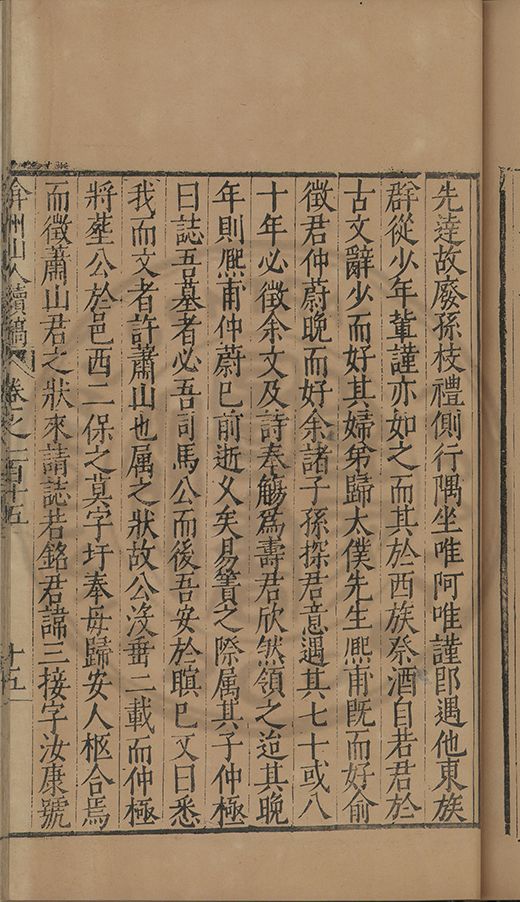 先達故廢孫枝禮側行隅坐唯阿唯謹即遇他東族
群從少年輩謹亦如之而其於西族祭酒自若君於
古文辭少而好其婦弟歸太僕先生熙甫既而好俞
徵君仲蔚晚而好余諸子孫探君意遇其七十或八
十年必徵余文及詩奉觴為壽君欣然領之迨其晚
年則熙甫仲蔚已前逝久矣易簀之際属其子仲極
曰誌吾墓者必吾司馬公而後吾安於瞑已又曰悉
我而文者許蕭山也属之狀故公沒垂二載而仲極
將塟公於邑西二保之莫字圩奉毋歸安人柩合焉
而徵蕭山君之狀來請誌若銘君諱三接字汝康號
弇州山人續稿 卷之一百十五 十五